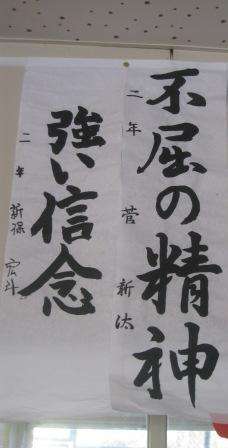 不屈の精神
二年 菅 新汰
強い信念
二年 新保 宏斗